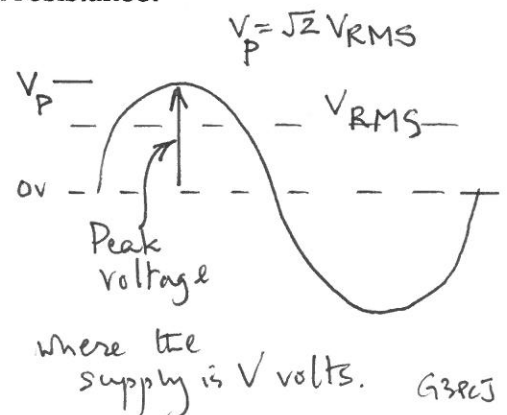 resistance.
V_P = √2 V_RMS
V_P
V_RMS
0V
Peak
voltage
where the
supply is V volts.
G3PCJ